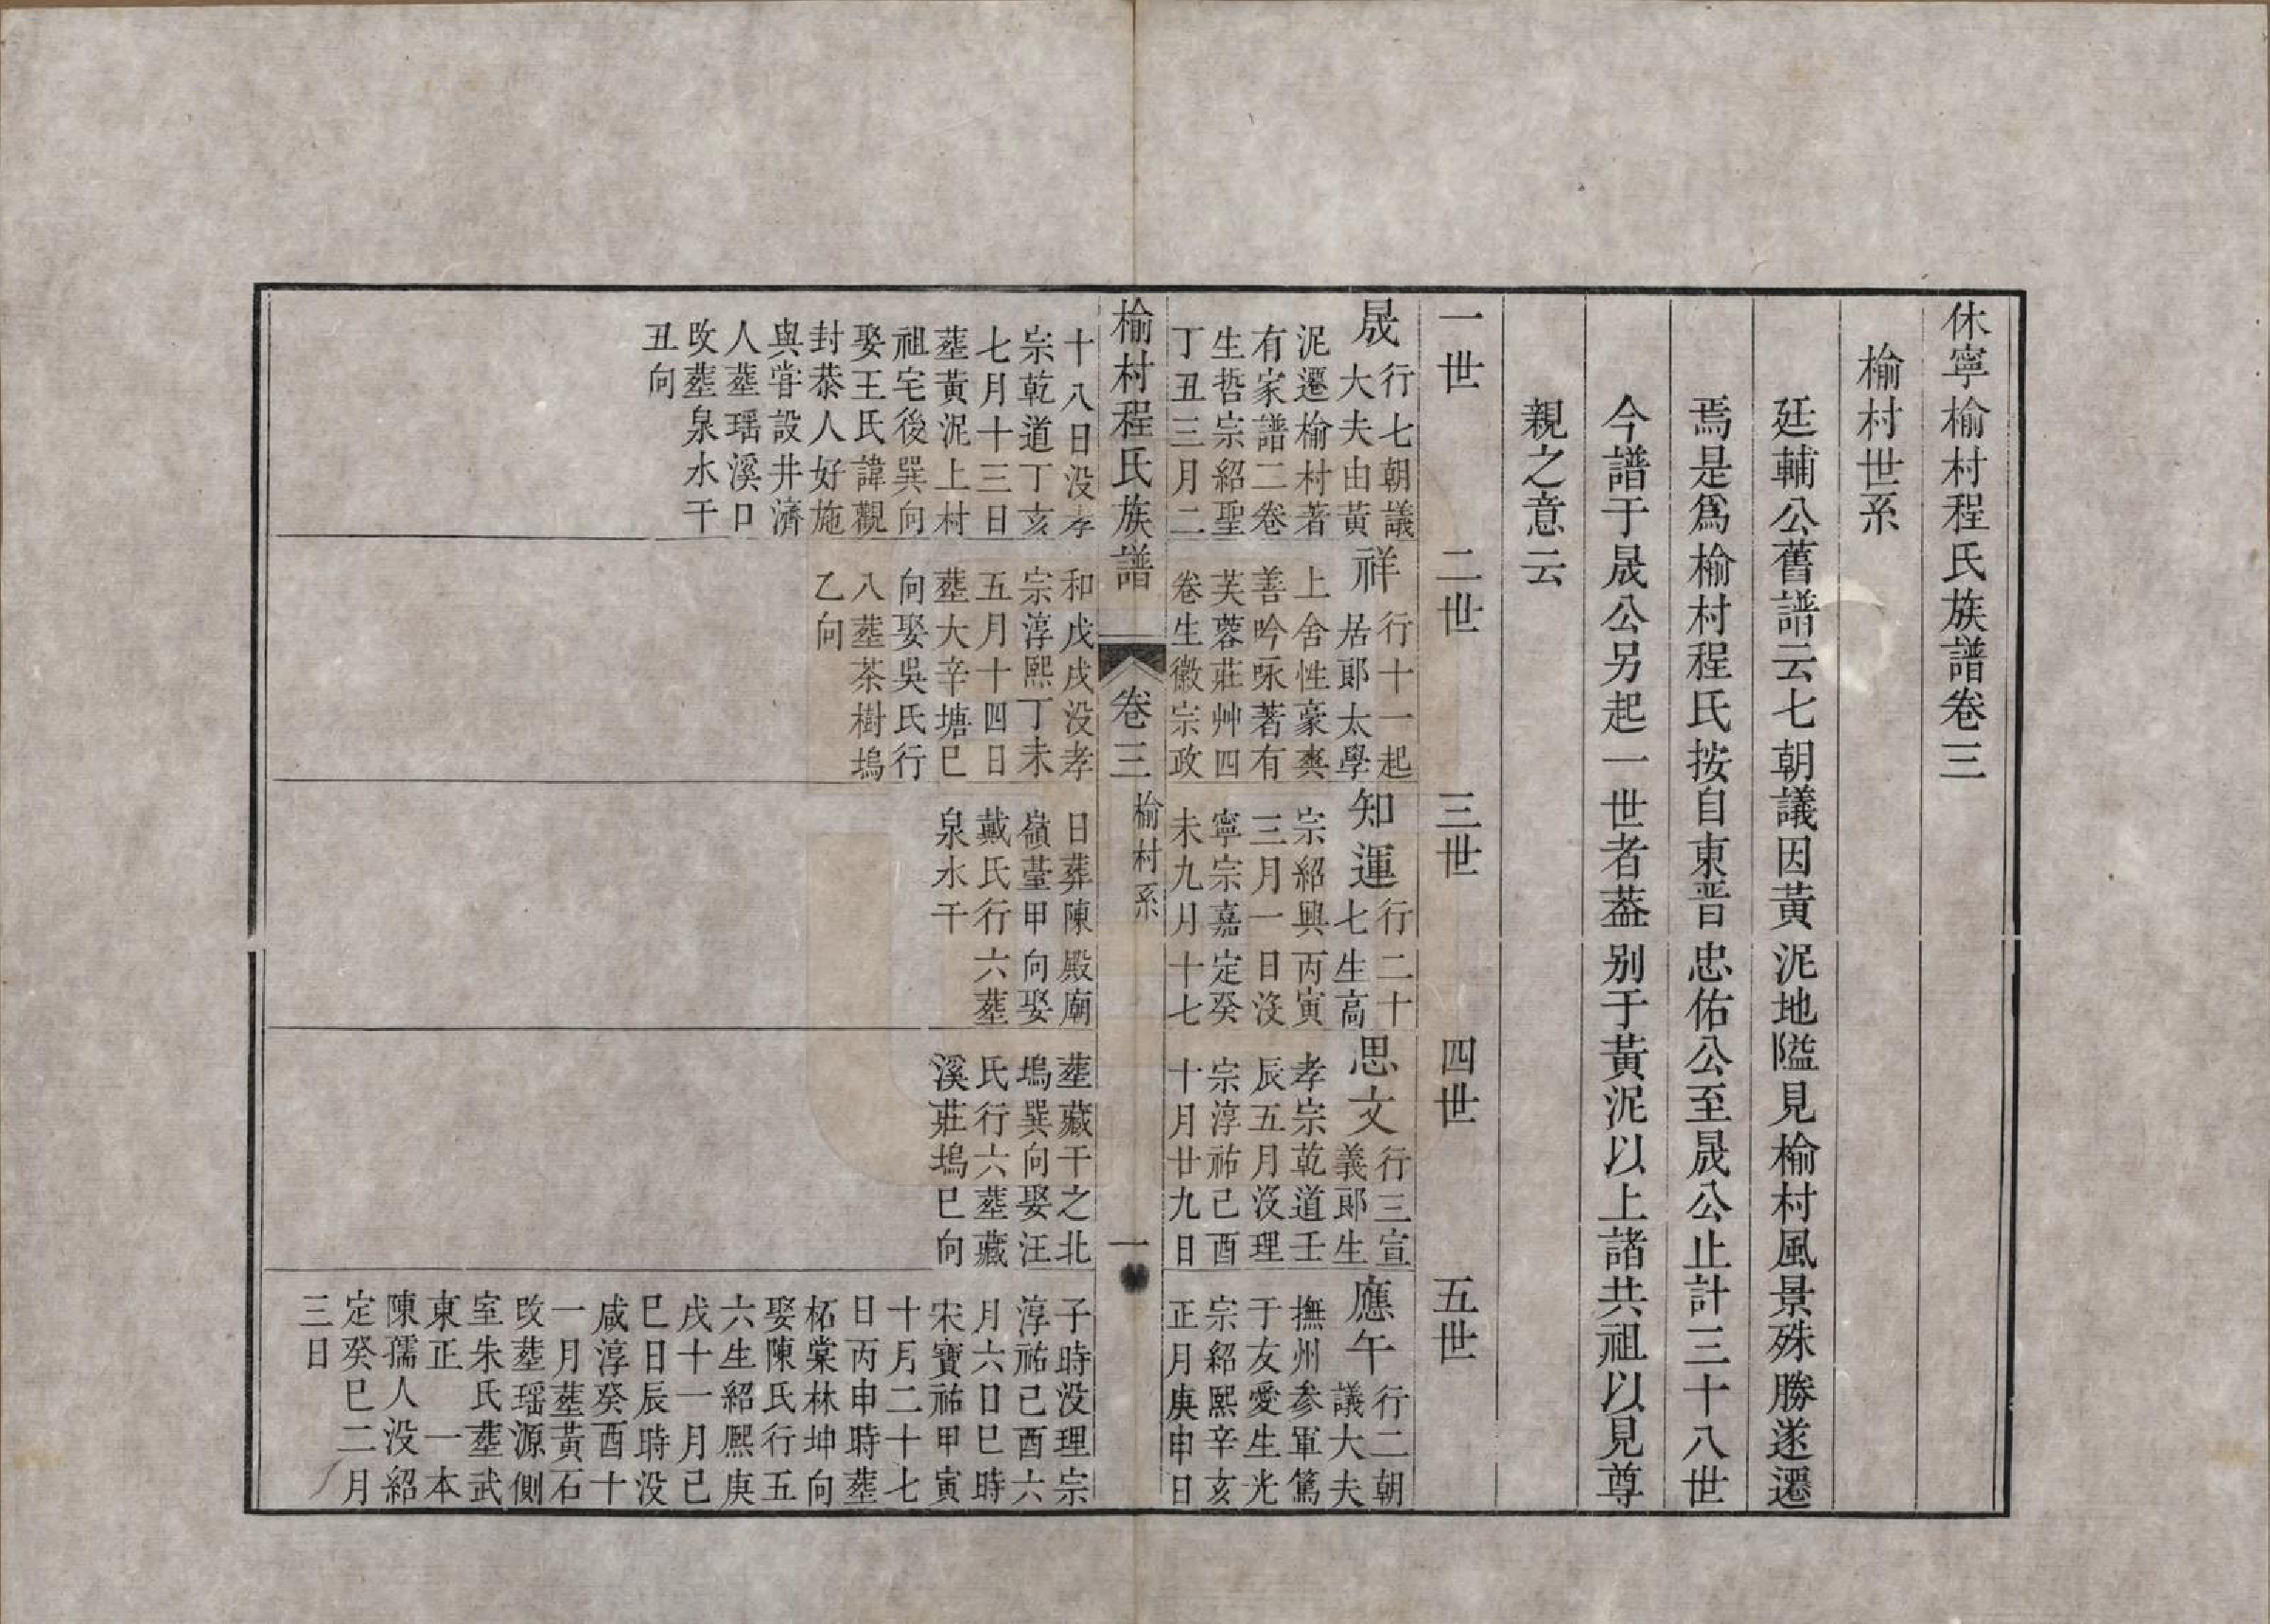 休寧榆村程氏族譜卷三
榆村世系
廷輔公舊譜云七朝議因黃泥地隘見榆村風景殊勝遂遷
焉是爲榆村程氏按自東晋忠佑公至晟公止計三十八世
今譜于晟公另起一世者葢别于黃泥以上諸共祖以見尊
親之意云
一世
二世
三世
四世
五世
晟
行七朝議
大夫由黃
泥遷榆村著
有家譜二卷
生哲宗紹聖
丁丑三月二
祥
行十一起
居郎太學
上舍性豪爽
善吟咏著有
芙蓉莊艸四
卷生徽宗政
知運
行二十
七生高
宗紹興丙寅
三月一日沒
寧宗嘉定癸
未九月十七
思文
行三宣
義郎生
孝宗乾道壬
辰五月沒理
宗淳祐己酉
十月廿九日
應午
行二朝
議大夫
撫州参軍篤
于友愛生光
宗紹熙辛亥
正月庚申日
榆村程氏族譜
卷三
榆村系
一
十八日没孝
宗乾道丁亥
七月十三日
塟黃泥上村
祖宅後巽向
娶王氏諱觀
封恭人好施
與甞設井濟
人塟瑶溪口
改塟泉水干
丑向
和戊戌没孝
宗淳熙丁未
五月十四日
塟大辛塘巳
向娶吳氏行
八塟茶樹塢
乙向
日葬陳殿廟
嶺䑓甲向娶
戴氏行六塟
泉水干
塟藏干之北
塢巽向娶汪
氏行六塟藏
溪莊塢巳向
子時没理宗
淳祐己酉六
月六日巳時
宋寶祐甲寅
十月二十七
日丙申時塟
柘棠林坤向
娶陳氏行五
六生紹熙庚
戌十一月己
巳日辰時没
咸淳癸酉十
一月塟黃石
改塟瑶源側
室朱氏塟武
東正一本
陳孺人没紹
定癸巳二月
三日